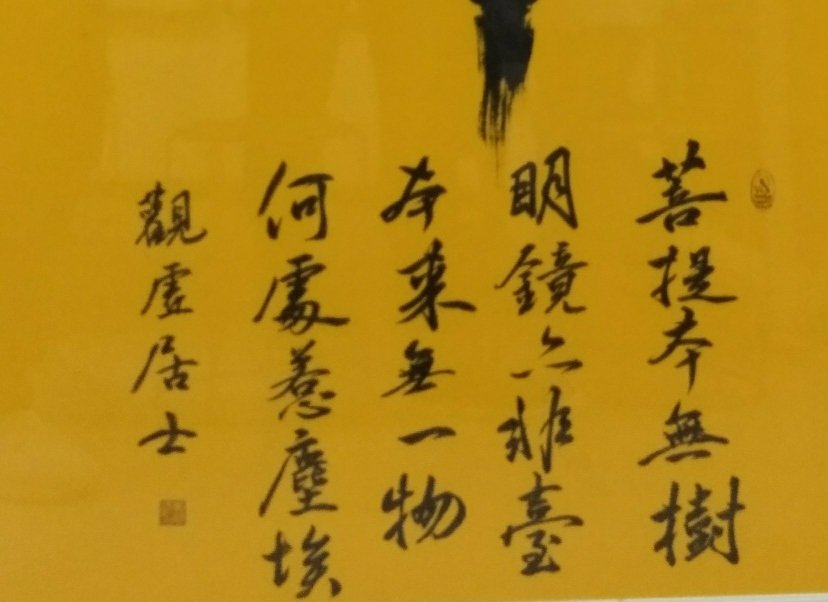 菩提本無樹
明鏡亦非臺
本来無一物
何處惹塵埃
觀虛居士